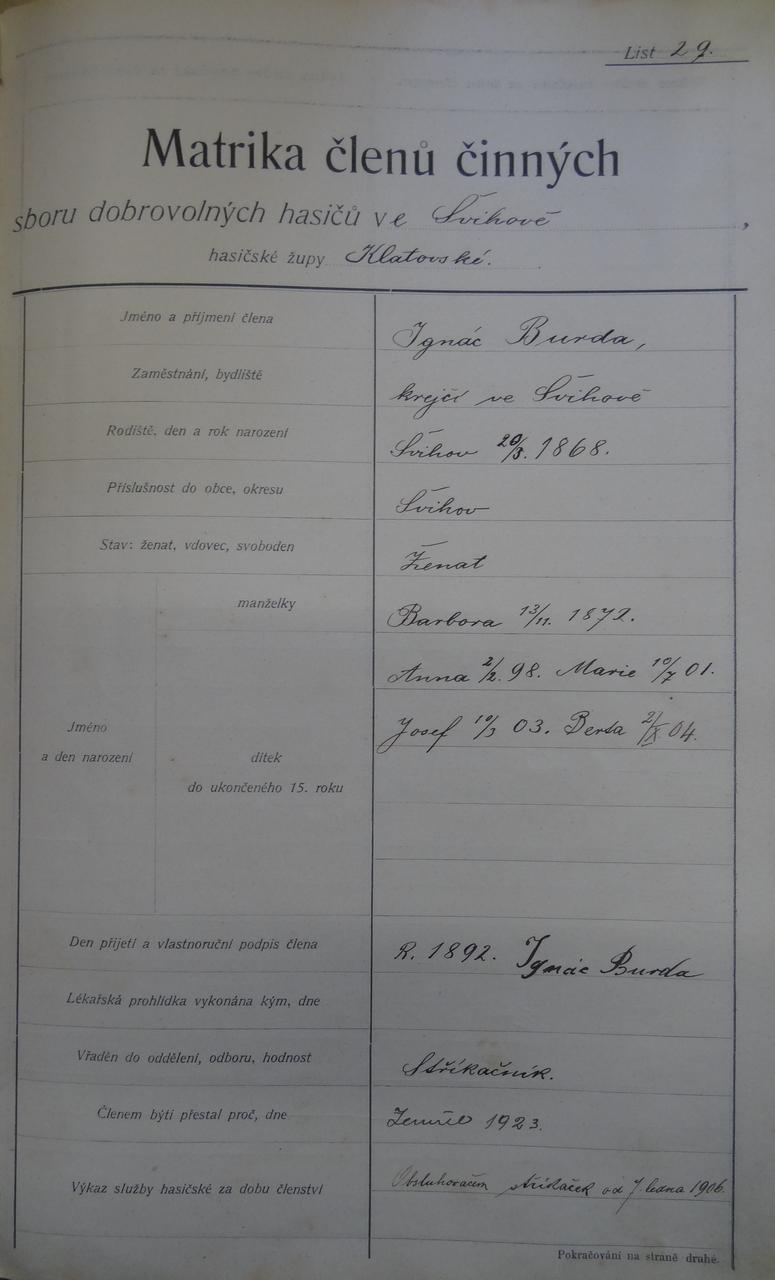 List 29.
Matrika členů činných
sboru dobrovolných hasičů ve Švihově,
hasičské župy Klatovské.
Jméno a příjmení člena Ignác Burda,
Zaměstnání, bydliště krejčí ve Švihově
Rodiště, den a rok narození Švihov 20/3. 1868.
Příslušnost do obce, okresu Švihov
Stav: ženat, vdovec, svoboden Ženat
manželky Barbora 13/11. 1872.
Anna 2/2. 98. Marie 10/7 01.
Jméno Josef 10/3 03. Berta 2/X 04.
a den narození dítek
do ukončeného 15. roku
Den přijetí a vlastnoruční podpis člena R. 1892. Ignác Burda
Lékařská prohlídka vykonána kým, dne
Vřaděn do oddělení, odboru, hodnost Stříkačník.
Členem býti přestal proč, dne Zemřel 1923.
Výkaz služby hasičské za dobu členství Obsluhovačem stříkaček od 7. ledna 1906.
Pokračování na straně druhé.